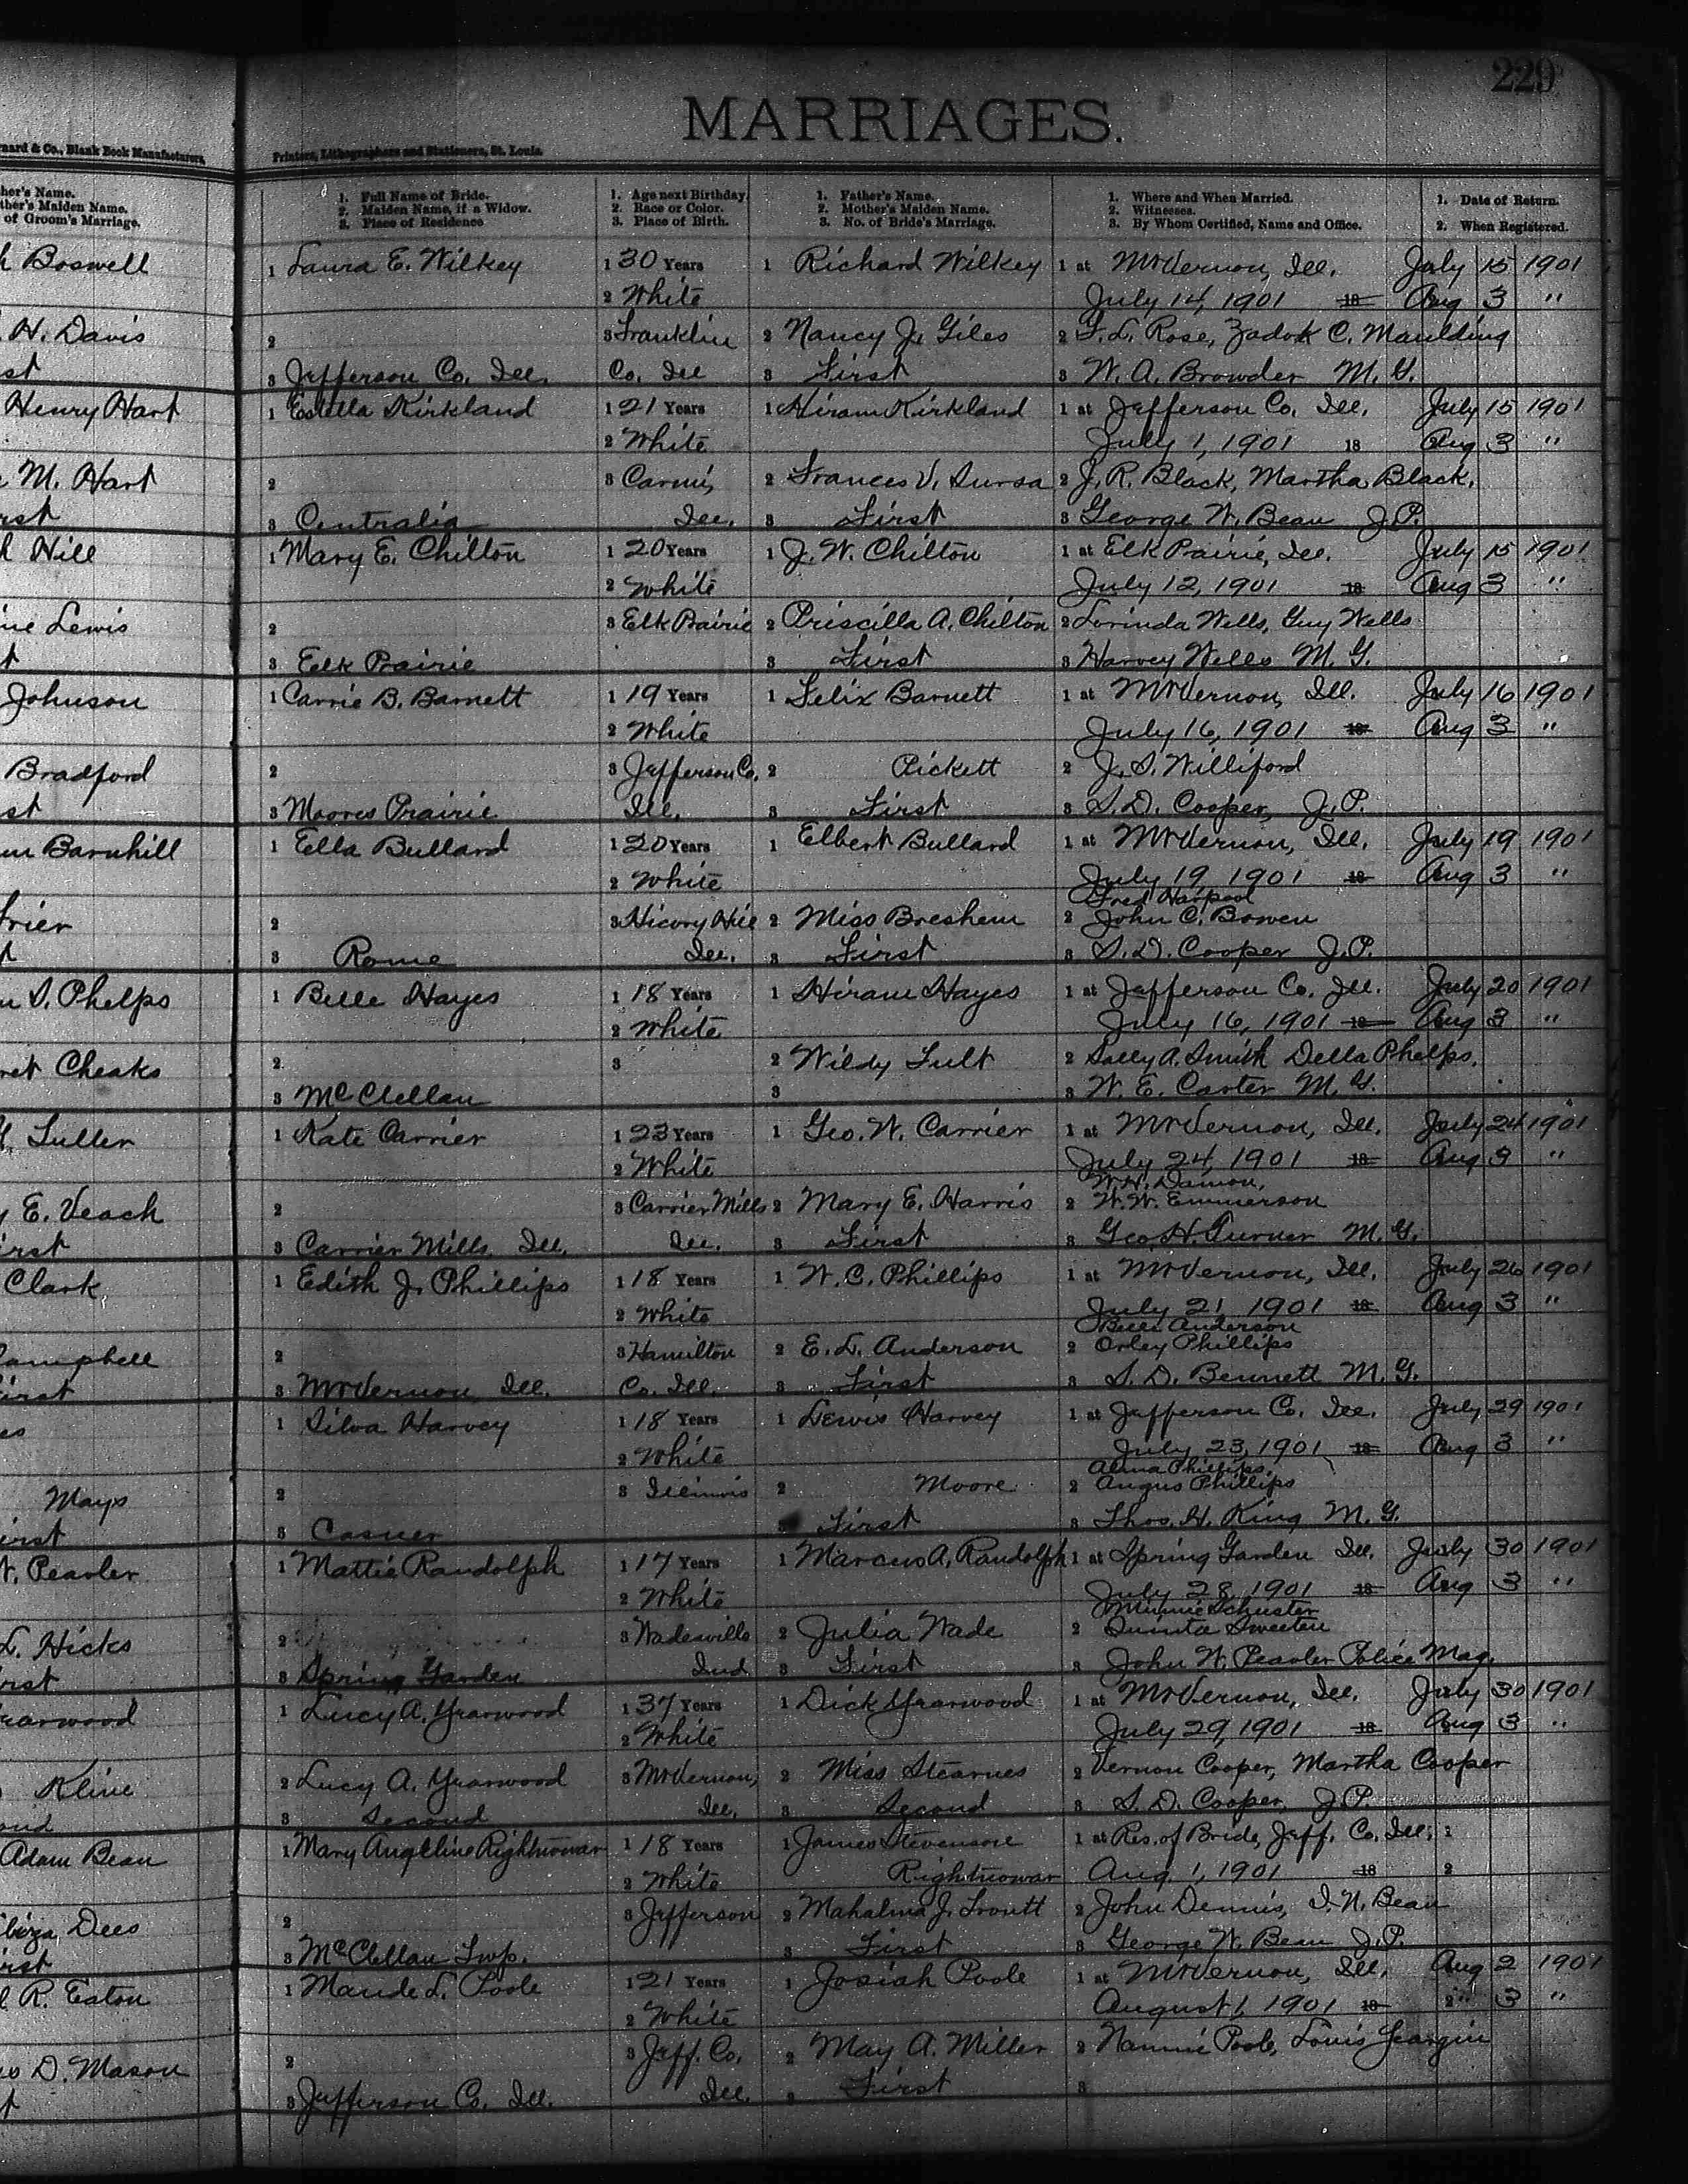 229
MARRIAGES.
nard & Co., Blank Book Manufacturers,
Printers, Lithographers and Stationers, St. Louis.
her's Name.
ther's Maiden Name.
of Groom's Marriage.
1. Full Name of Bride.
2. Maiden Name, if a Widow.
3. Place of Residence
1. Age next Birthday.
2. Race or Color.
3. Place of Birth.
1. Father's Name.
2. Mother's Maiden Name.
3. No. of Bride's Marriage.
1. Where and When Married.
2. Witnesses.
3. By Whom Certified, Name and Office.
1. Date of Return.
2. When Registered.
h Boswell 1 Laura E. Wilkey 1 30 Years 1 Richard Wilkey 1 at Mt Vernon, Ill. July 15 1901
2 White July 14, 1901 18 Aug 3 "
H. Davis 2 3 Franklin 2 Nancy J. Giles 2 F. L. Rose, Zadok C. Maulding
st 3 Jefferson Co. Ill. Co. Ill 3 First 3 W. A. Browder M. G.
Henry Hart 1 Estella Kirkland 1 21 Years 1 Hiram Kirkland 1 at Jefferson Co. Ill. July 15 1901
2 White July 1, 1901 18 Aug 3 "
M. Hart 2 3 Carmi, 2 Frances V. 2 J. R. Black, Martha Black.
rst 3 Centralia Ill. 3 First 3 George W. Bean J.P.
h Hill 1 Mary E. Chilton 1 20 Years 1 J. W. Chilton 1 at Elk Pairie, Ill. July 15 1901
2 White July 12, 1901 18 Aug 3 "
ine Lewis 2 3 Elk Pairie 2 Priscilla A. Chilton 2 Lorinda Wells, Guy Wells
t 3 Elk Prairie 3 First 3 Harvey Wells M. G.
Johnson 1 Carrie B. Barnett 1 19 Years 1 Felix Barnett 1 at Mt Vernon, Ill. July 16 1901
2 White July 16, 1901 18 Aug 3 "
Bradford 2 3 Jefferson Co. 2 Pickett 2 J. S. Williford
st 3 Moores Prairie Ill. 3 First 3 S. D. Cooper, J. P.
m Barnhill 1 Ella Bullard 1 20 Years 1 Elbert Bullard 1 at Mt Vernon, Ill. July 19 1901
2 White July 19, 1901 18 Aug 3 "
Fred Harpool
rier 2 3 Hicory Hill 2 Miss Breshem 2 John C. Bowen
t 3 Rome Ill. 3 First 3 S. D. Cooper J.P.
n S. Phelps 1 Belle Hayes 1 18 Years 1 Hiram Hayes 1 at Jefferson Co. Ill. July 20 1901
2 White July 16, 1901 18 Aug 3 "
ret Cheaks 2 3 2 Wildy Fult 2 Sally A. Smith Della Phelps.
3 McClellan 3 3 W. E. Carter M. G.
Fuller 1 Kate Carrier 1 23 Years 1 Geo. W. Carrier 1 at Mt Vernon, Ill. July 24 1901
2 White July 24, 1901 18 Aug 3 "
W. H. Damon,
y E. Veach 2 3 Carrier Mills 2 Mary E. Harris 2 W. W. Emmerson
irst 3 Carrier Mills Ill. Ill. 3 First 3 Geo. H. Turner M. G.
Clark 1 Edith J. Phillips 1 18 Years 1 W. C. Phillips 1 at Mt Vernon, Ill. July 26 1901
2 White July 21, 1901 18 Aug 3 "
Anderson
ampbell 2 3 Hamilton 2 E. L. Anderson 2 Orley Phillips
irst 3 Mt Vernon Ill. Co. Ill. 3 First 3 S. D. Bennett M. G.
es 1 Silva Harvey 1 18 Years 1 Lewis Harvey 1 at Jefferson Co. Ill. July 29 1901
2 White July 23, 1901 18 Aug 3 "
Alma Phillips,
Mays 2 3 Illinois 2 Moore 2 Angus Phillips
irst 3 Casner 3 First 3 Thos. H. King M. G.
W. Peavler 1 Mattie Randolph 1 17 Years 1 Marcus A. Randolph 1 at Spring Garden Ill. July 30 1901
2 White July 28, 1901 18 Aug 3 "
Minnie Schuster
L. Hicks 2 3 Wadesville 2 Julia Wade 2 Sweeten
irst 3 Spring Garden Ind 3 First 3 John W. Peavler Police Mag.
earwood 1 Lucy A. Yearwood 1 37 Years 1 Dick Yearwood 1 at Mt Vernon, Ill. July 30 1901
2 White July 29, 1901 18 Aug 3 "
Kline 2 Lucy A. Yearwood 3 Mt Vernon, 2 Miss Stearnes 2 Vernon Cooper, Martha Cooper
ond 3 Second Ill. 3 Second 3 S. D. Cooper, J. P.
Adam Bean 1 Mary Angeline Rightnowar 1 18 Years 1 James Stevenson 1 at Res. of Bride, Jeff. Co. Ill. 1
2 White Rightnowar Aug. 1, 1901 18 2
Dees 2 3 Jefferson 2 Mahalina J. Troutt 2 John Dennis, I. N. Bean
irst 3 McClellan Twp. 3 First 3 George W. Bean J.P.
l R. Eaton 1 Maude L. Poole 1 21 Years 1 Josiah Poole 1 at Mt Vernon, Ill. Aug 2 1901
2 White August 1, 1901 18 2 " 3 "
D. Mason 2 3 Jeff. Co. 2 May A. Miller 2 Nannie Poole, Louis Yeargin
t 3 Jefferson Co. Ill. Ill. 3 First 3